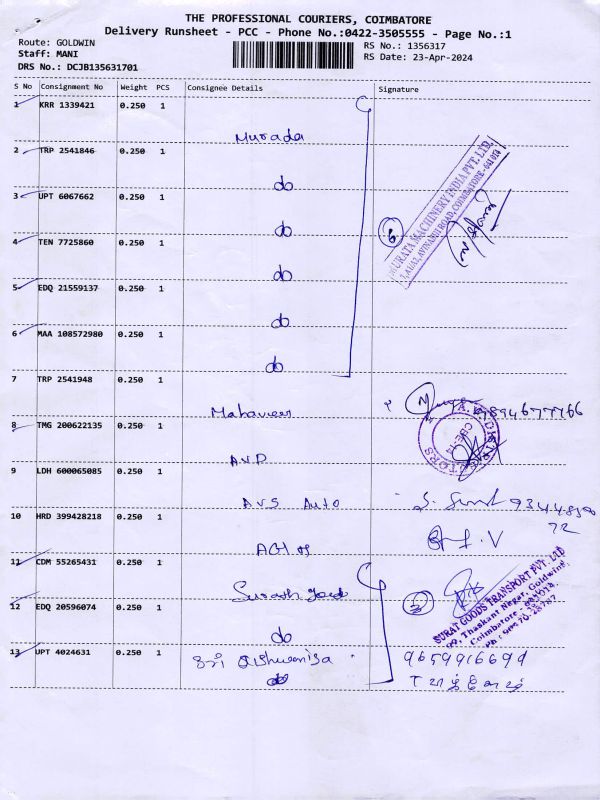 THE PROFESSIONAL COURIERS, COIMBATORE
Delivery Runsheet - PCC - Phone No.:0422-3505555 - Page No.:1
Route: GOLDWIN
Staff: MANI
DRS No.: DCJB135631701
RS No.: 1356317
RS Date: 23-Apr-2024
S No Consignment No Weight PCS Consignee Details Signature
1 KRR 1339421 0.250 1
Murada
2 TRP 2541846 0.250 1
do
3 UPT 6067662 0.250 1
do
4 TEN 7725860 0.250 1
do
5 EDQ 21559137 0.250 1
do
6 MAA 108572980 0.250 1
do
6
MURATA MACHINERY INDIA PVT. LTD.
AVINASHI ROAD, COIMBATORE - 641 014
7 TRP 2541948 0.250 1
Mahaveer
8 TMG 200622135 0.250 1
A.V.P
9 LDH 600065085 0.250 1
AVS Auto
10 HRD 399428218 0.250 1
11 CDM 55265431 0.250 1
12 EDQ 20596074 0.250 1
do
3
SURAT GOODS TRANSPORT PVT LTD
Thaskant Nagar, Goldwins,
Coimbatore -
13 UPT 4024631 0.250 1
9659916699